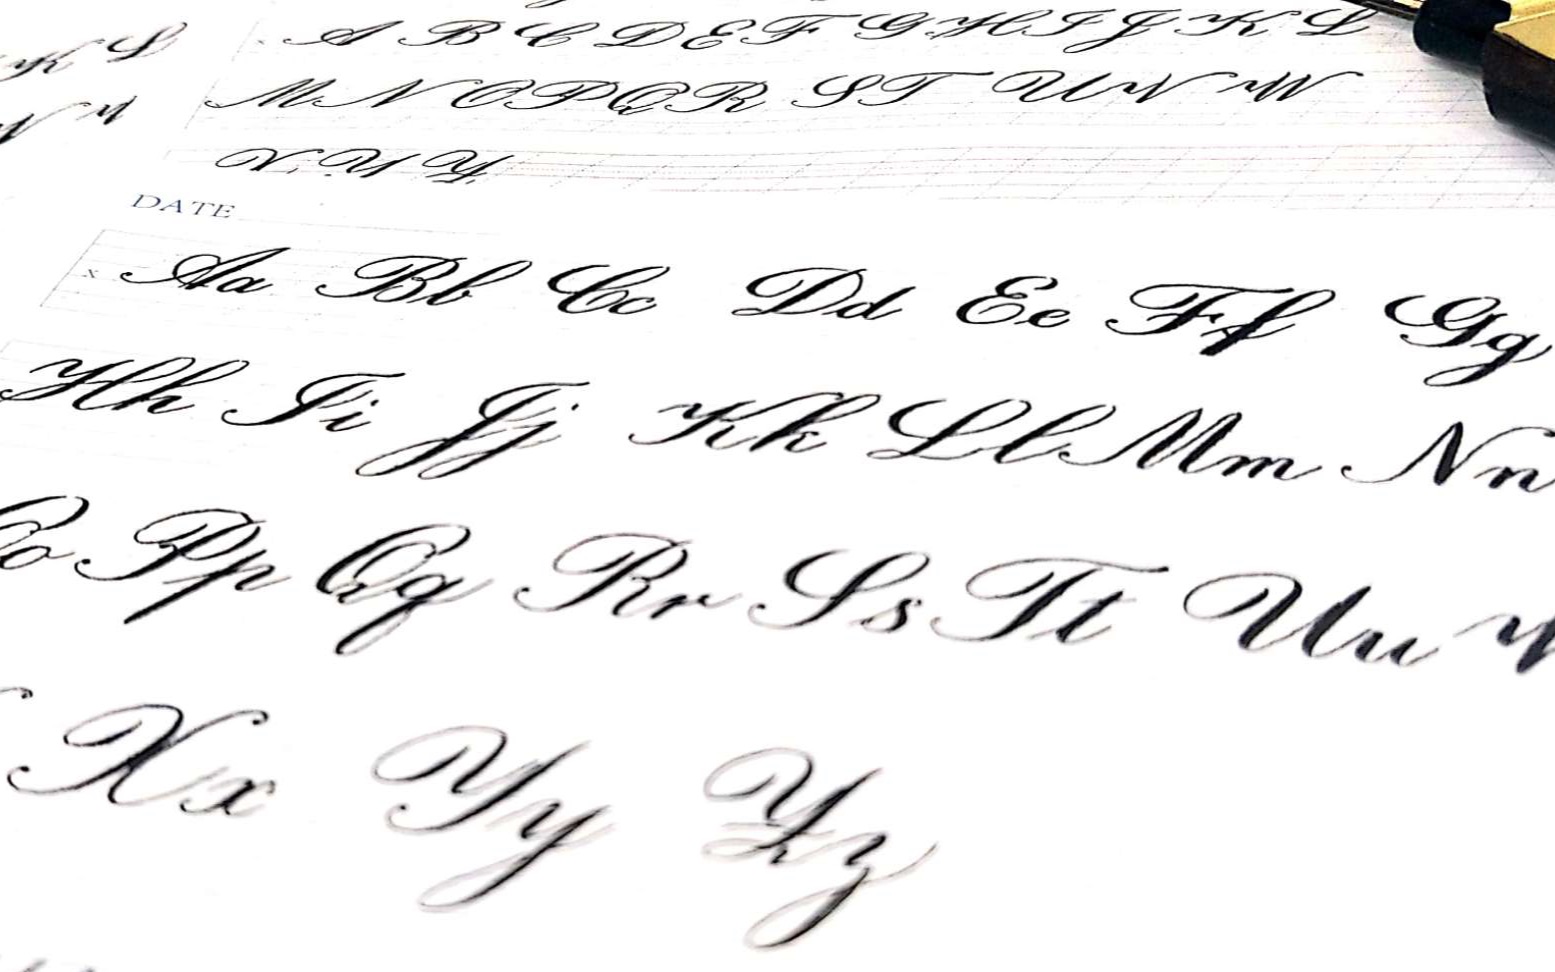 A B C D E F G H I J K L
M N O P Q R S T U V W
X Y Z
DATE
x Aa Bb Cc Dd Ee Ff Gg
Hh Ii Jj Kk Ll Mm Nn
Oo Pp Qq Rr Ss Tt Uu
Xx Yy Zz